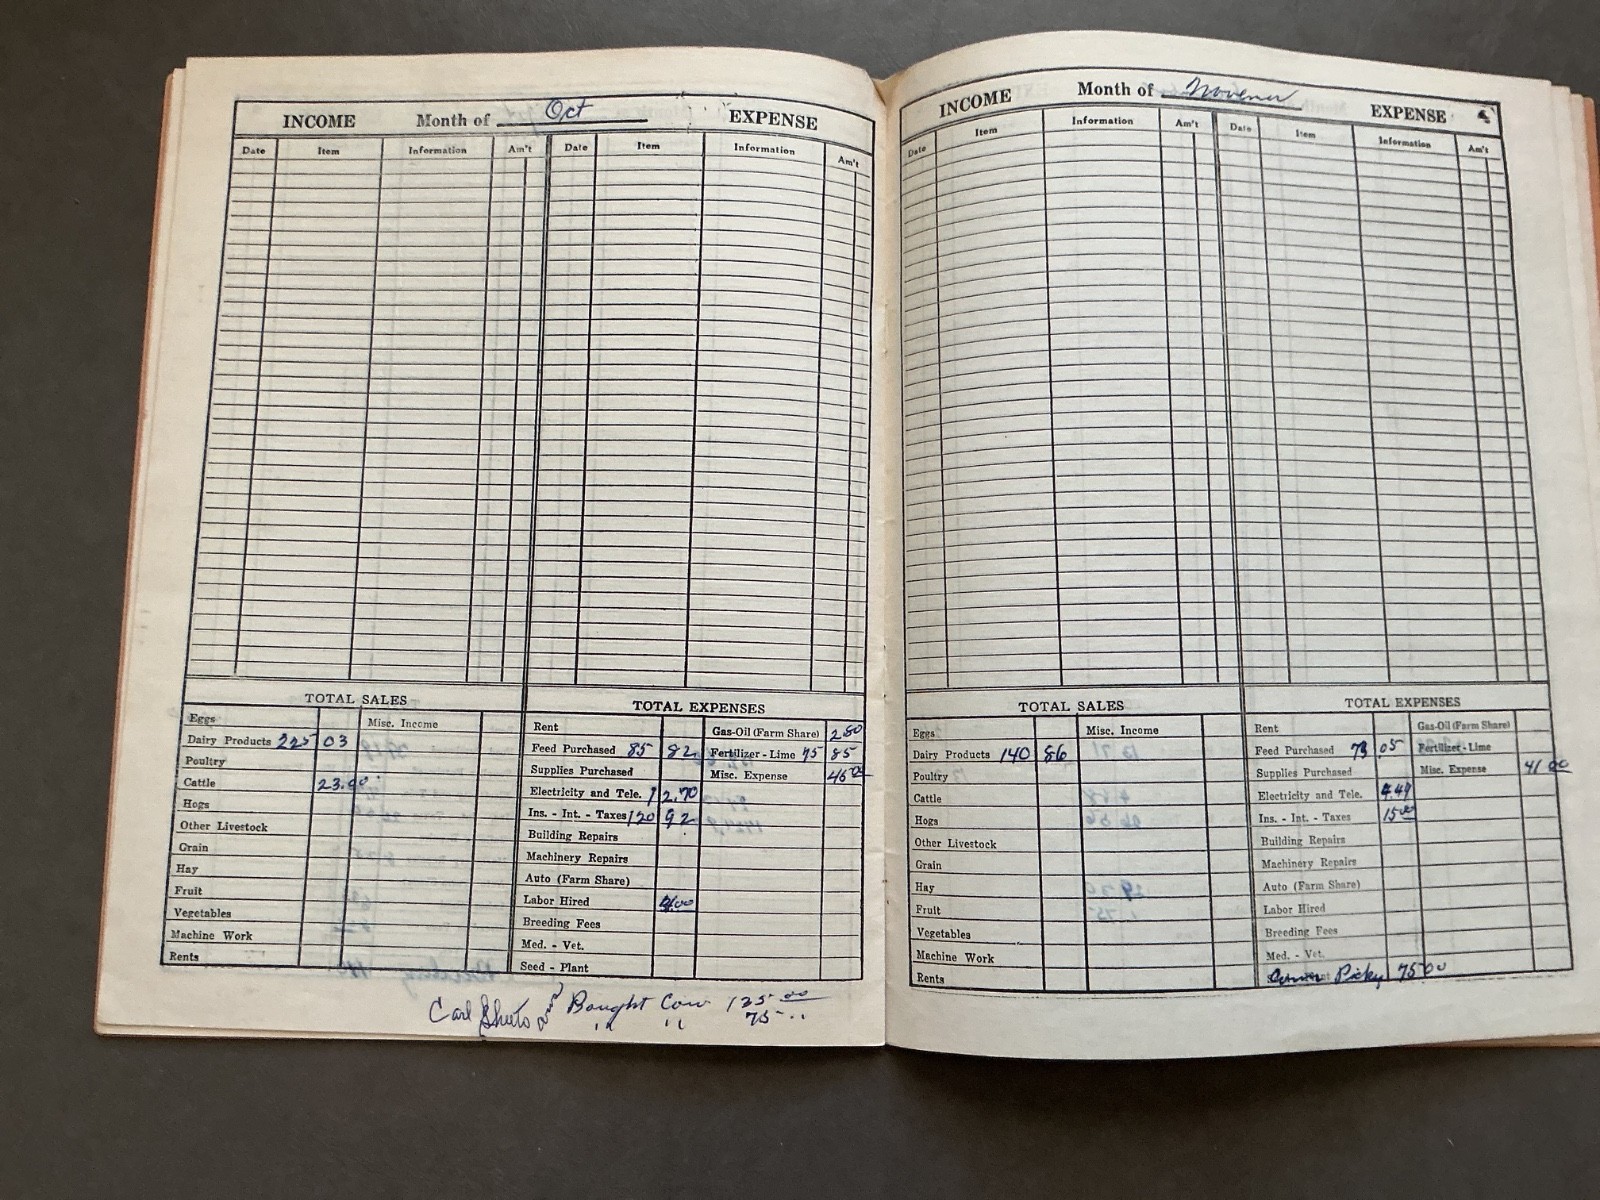 INCOME Month of Oct EXPENSE
Date Item Information Am't Date Item Information Am't
TOTAL SALES
Eggs Misc. Income
Dairy Products 225 03
Poultry
Cattle 23.00
Hogs
Other Livestock
Grain
Hay
Fruit
Vegetables
Machine Work
Rents
TOTAL EXPENSES
Rent Gas-Oil (Farm Share) 2 80
Feed Purchased 85 82 Fertilizer - Lime 75 85
Supplies Purchased Misc. Expense 46 00
Electricity and Tele. 12.70
Ins. - Int. - Taxes 120 92
Building Repairs
Machinery Repairs
Auto (Farm Share)
Labor Hired
Breeding Fees
Med. - Vet.
Seed - Plant
Carl Bought Cow 125 00
" " 75 "
INCOME Month of Novener EXPENSE
Date Item Information Am't Date Item Information Am't
TOTAL SALES
Eggs Misc. Income
Dairy Products 140 86
Poultry
Cattle
Hogs
Other Livestock
Grain
Hay
Fruit
Vegetables
Machine Work
Rents
TOTAL EXPENSES
Rent Gas-Oil (Farm Share)
Feed Purchased 73.05 Fertilizer - Lime
Supplies Purchased Misc. Expense 41 00
Electricity and Tele. 4.49
Ins. - Int. - Taxes 15 00
Building Repairs
Machinery Repairs
Auto (Farm Share)
Labor Hired
Breeding Fees
Med. - Vet.
Picky 75 00